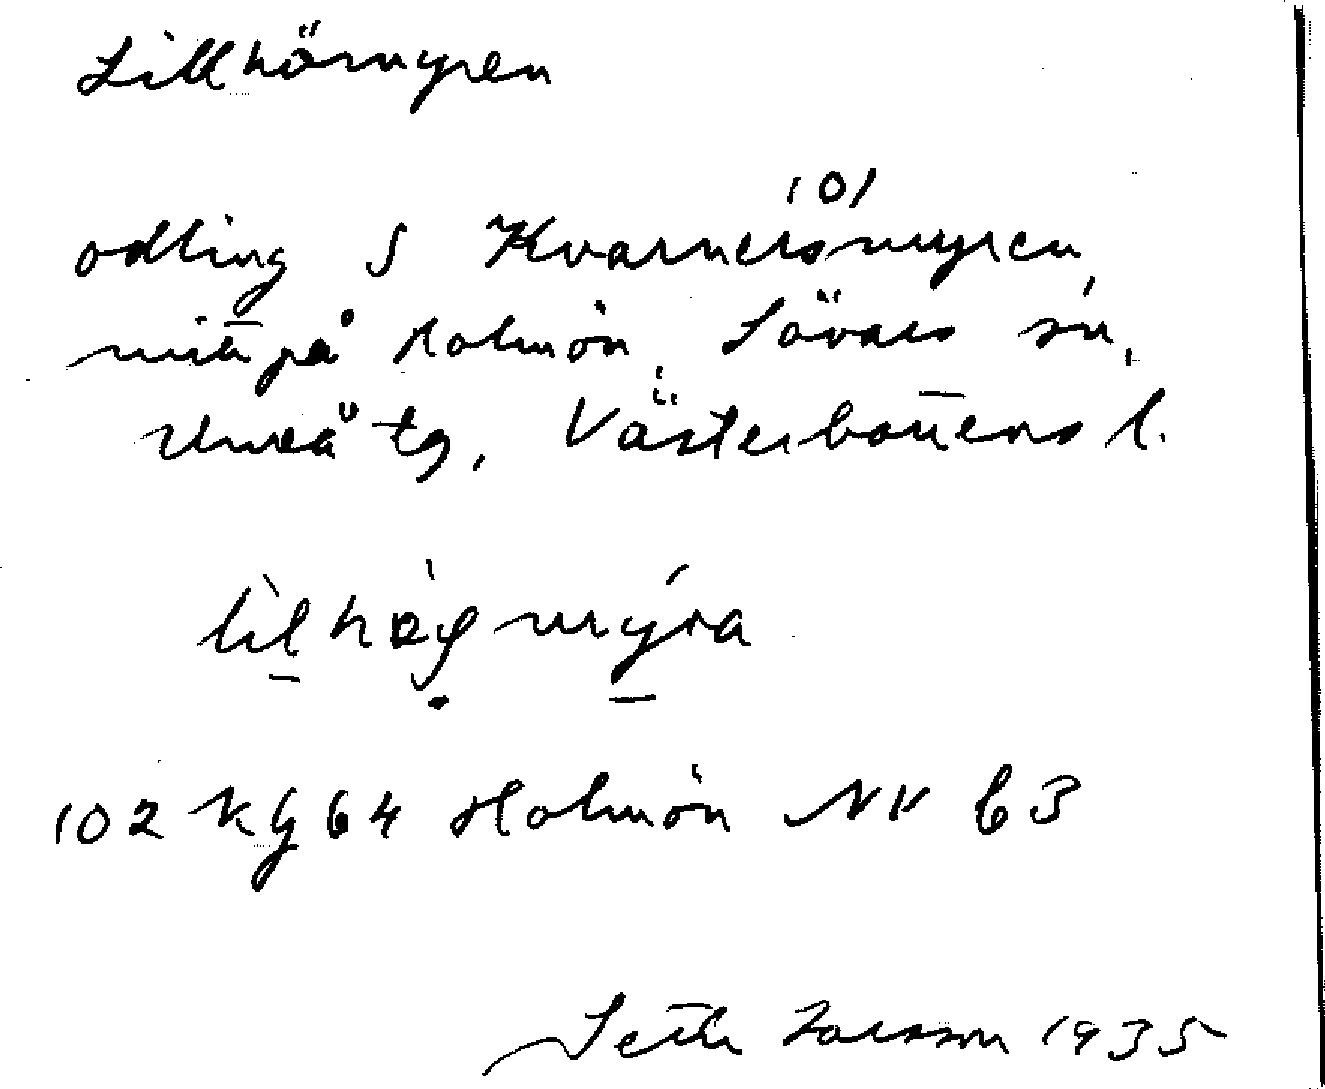 Lillhörnyren
101
odling S Kvarnersmyren,
mitt på Holmön, Sävars sn,
Umeå tg, Västerbottens l.
102 KG 64 Holmön NV 63
Seth Larsson 1935